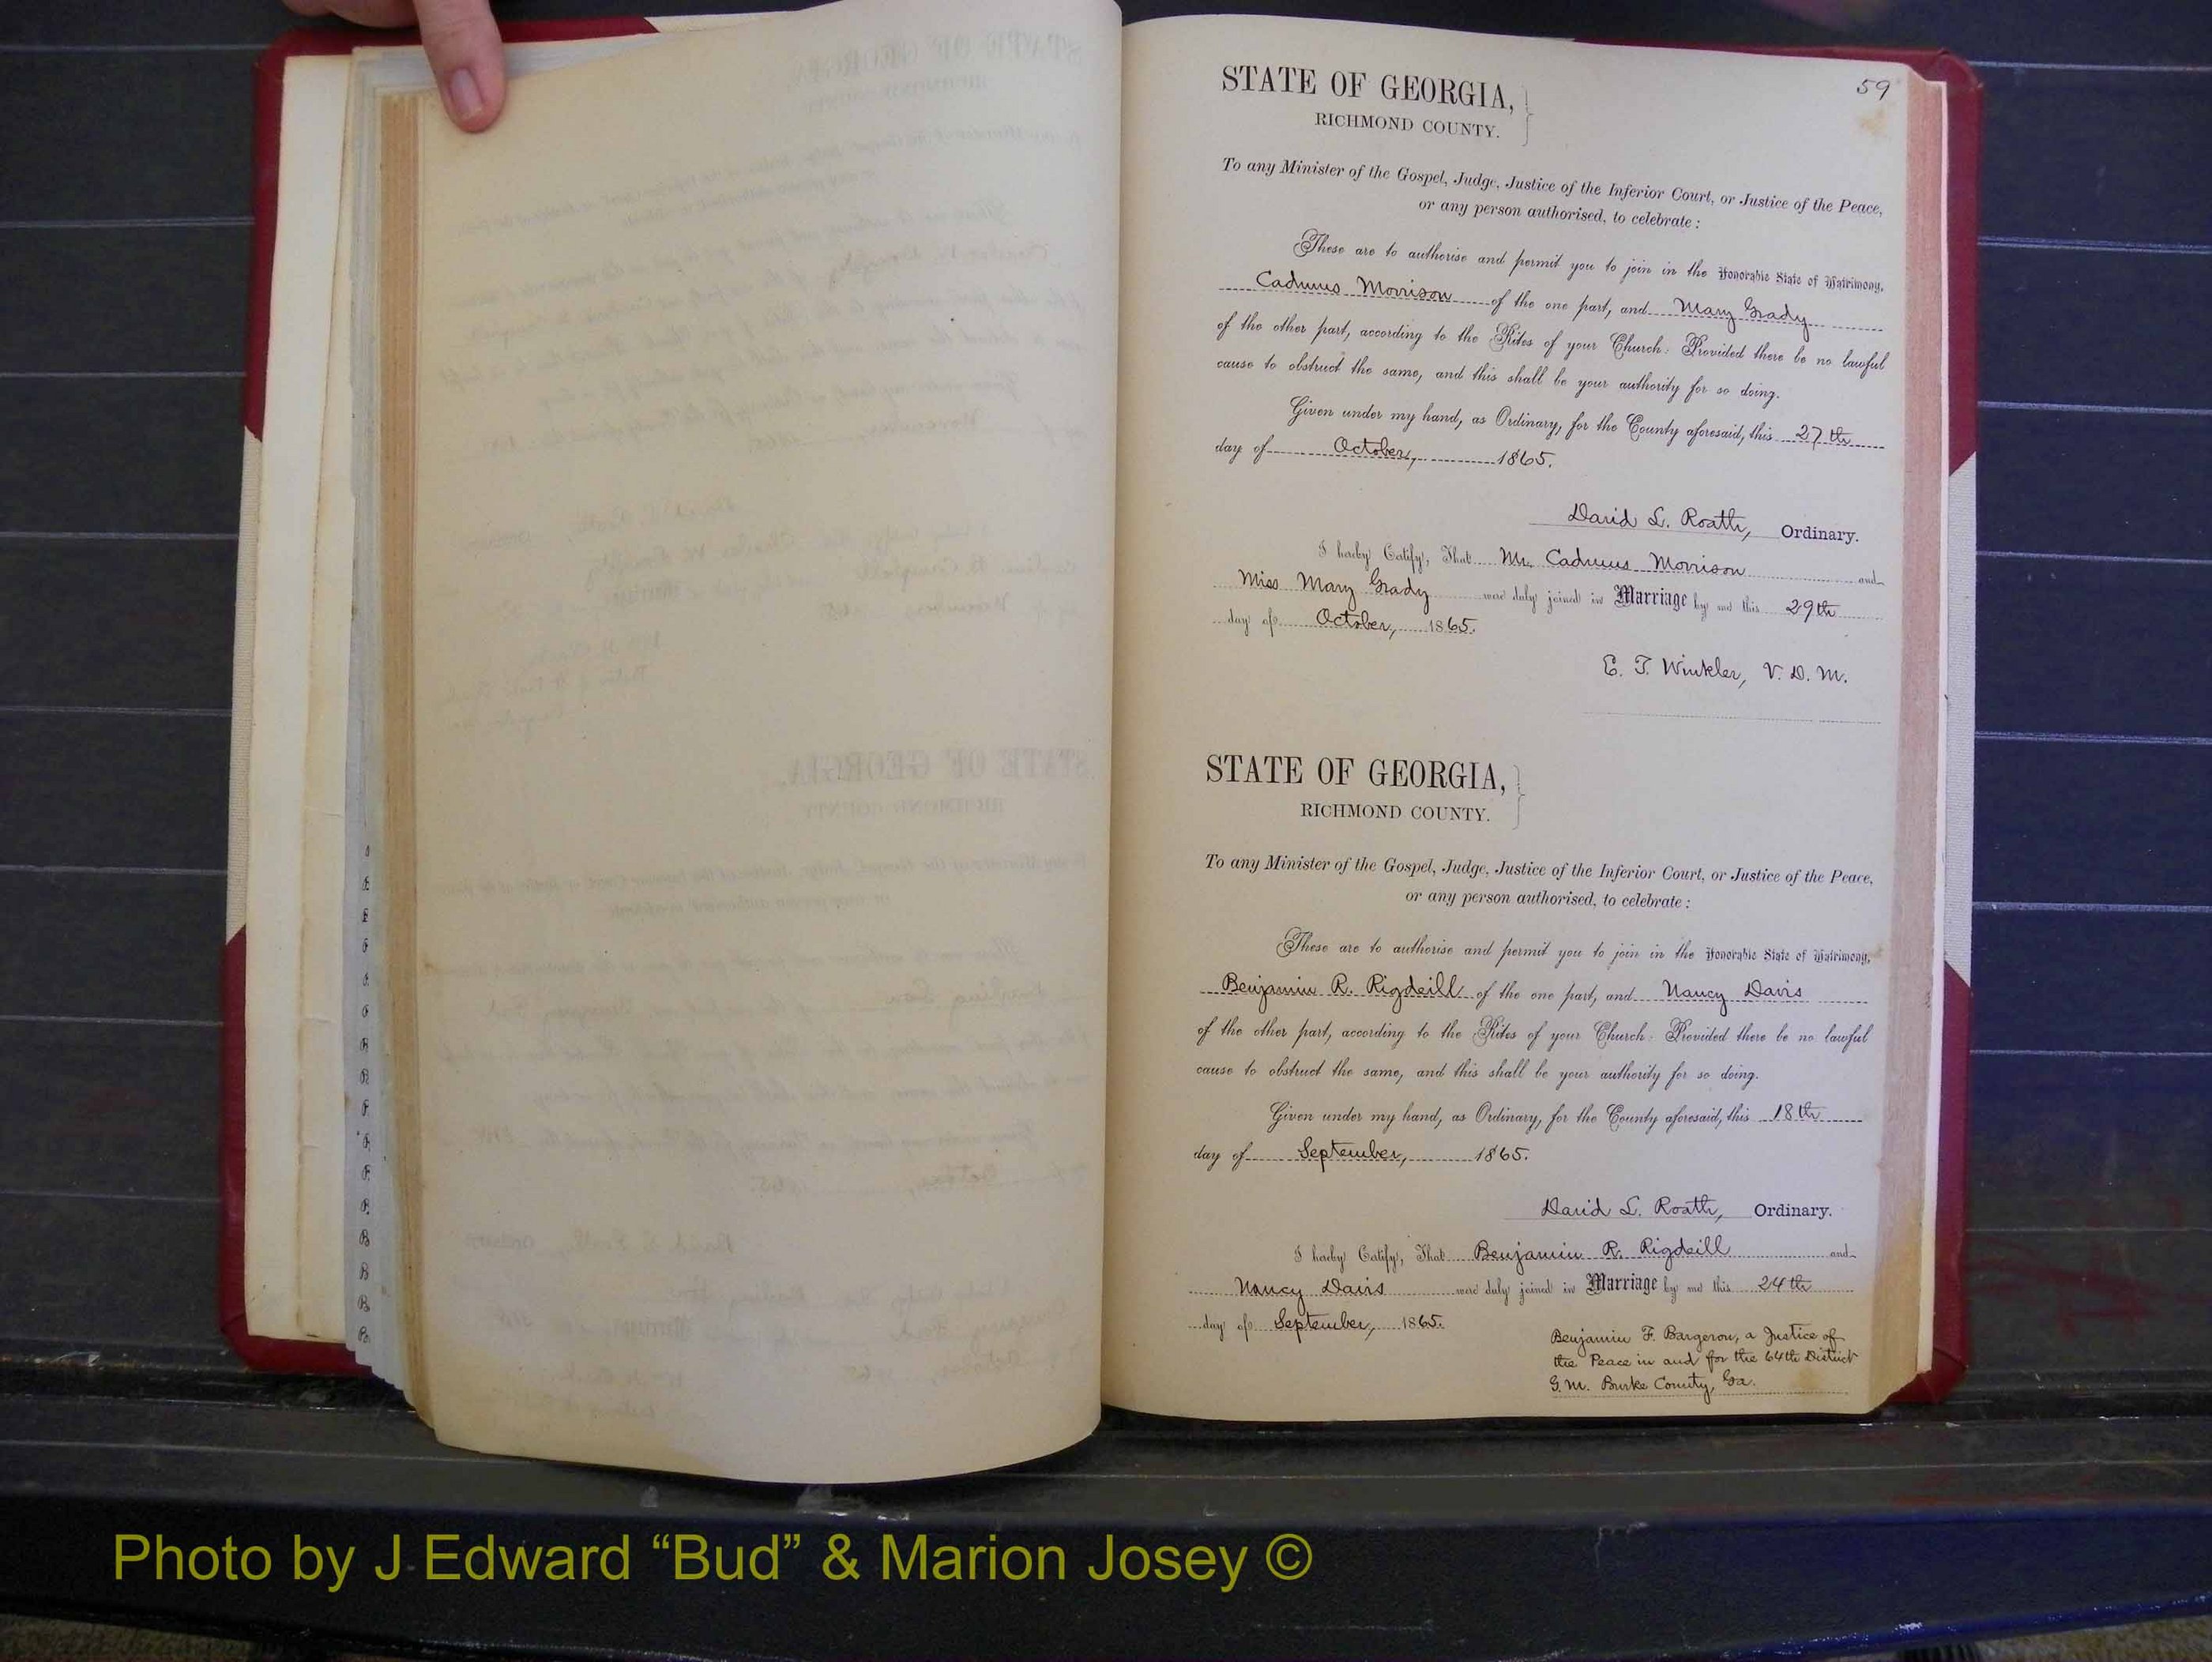 59
STATE OF GEORGIA,
RICHMOND COUNTY.
To any Minister of the Gospel, Judge, Justice of the Inferior Court, or Justice of the Peace,
or any person authorised, to celebrate:
These are to authorise and permit you to join in the Honorable State of Matrimony,
Cadmus Morrison of the one part, and Mary Grady
of the other part, according to the Rites of your Church: Provided there be no lawful
cause to obstruct the same, and this shall be your authority for so doing.
Given under my hand, as Ordinary, for the County aforesaid, this 27th
day of October, 1865.
David L. Roath, Ordinary.
I hereby Certify, That Mr. Cadmus Morrison and
Miss Mary Grady were duly joined in Marriage by me this 29th
day of October, 1865.
E. T. Winkler, V. D. M.
STATE OF GEORGIA,
RICHMOND COUNTY.
To any Minister of the Gospel, Judge, Justice of the Inferior Court, or Justice of the Peace,
or any person authorised, to celebrate:
These are to authorise and permit you to join in the Honorable State of Matrimony,
Benjamin R. Rigdeill of the one part, and Nancy Davis
of the other part, according to the Rites of your Church: Provided there be no lawful
cause to obstruct the same, and this shall be your authority for so doing.
Given under my hand, as Ordinary, for the County aforesaid, this 18th
day of September, 1865.
David L. Roath, Ordinary.
I hereby Certify, That Benjamin R. Rigdeill and
Nancy Davis were duly joined in Marriage by me this 24th
day of September, 1865.
Benjamin F. Bargeron, a Justice of
the Peace in and for the 64th District
G. M. Burke County, Ga.
Photo by J Edward “Bud” & Marion Josey ©